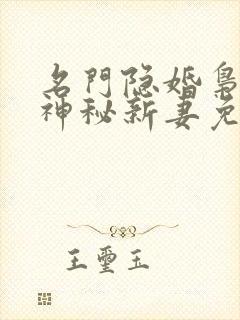 名門隐婚枭
神秘新妻免
王璽玉